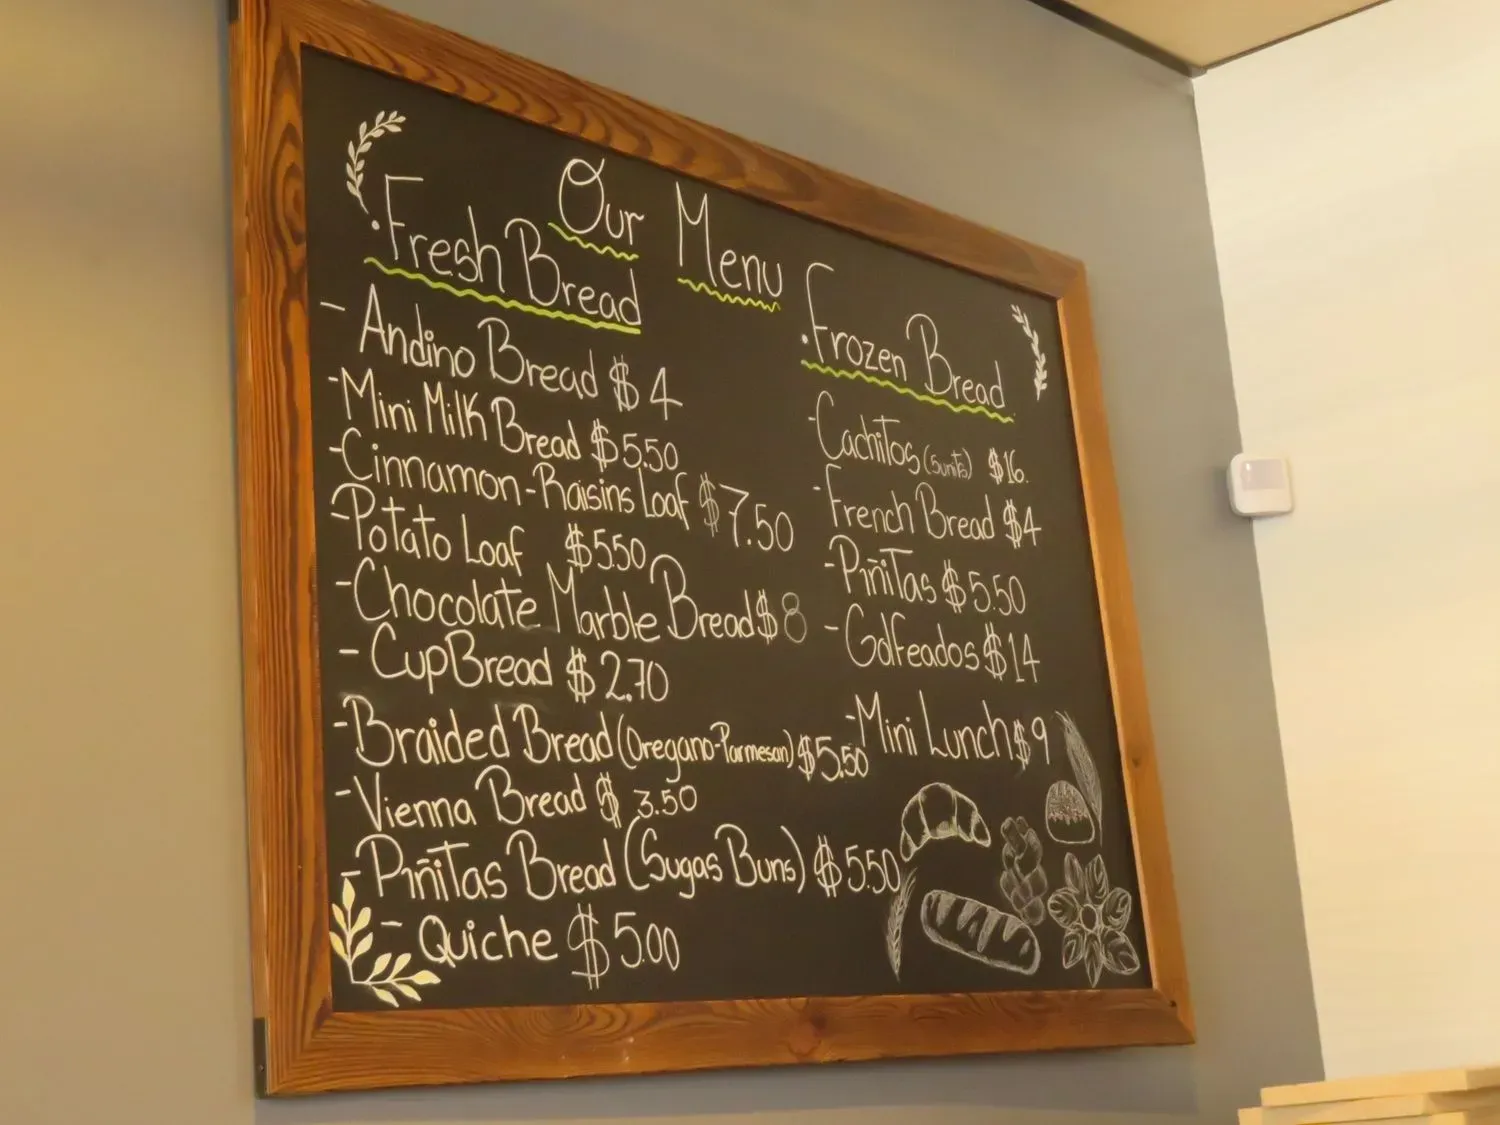 Our Menu
• Fresh Bread
- Andino Bread $4
- Mini Milk Bread $5.50
- Cinnamon-Raisins Loaf $7.50
- Potato Loaf $5.50
- Chocolate Marble Bread $8
- Cup Bread $2.70
- Braided Bread (Oregano-Parmesan) $5.50
- Vienna Bread $3.50
- Piñitas Bread (Sugas Buns) $5.50
- Quiche $5.00
• Frozen Bread
- Cachitos (5units) $16.
- French Bread $4
- Piñitas $5.50
- Golfeados $14
- Mini Lunch $9